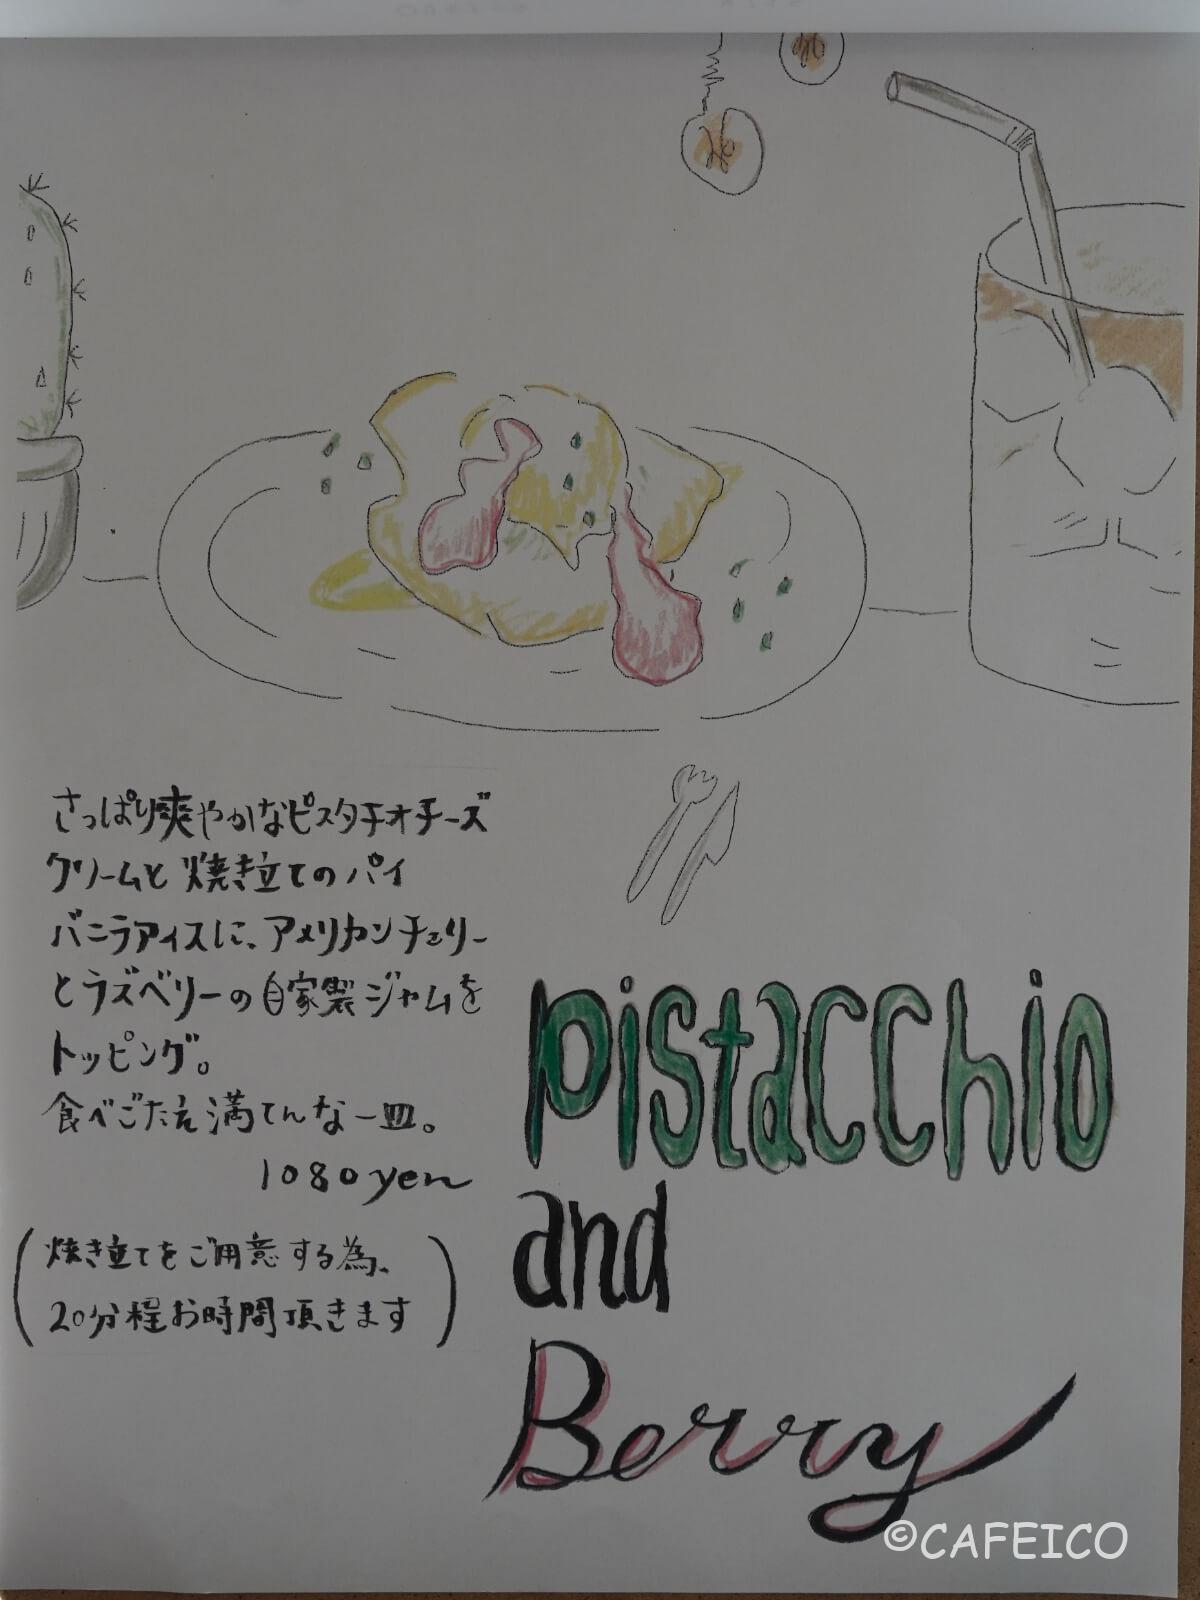 さっぱり爽やかなピスタチオチーズ
クリームと焼き立てのパイ
バニラアイスに、アメリカンチェリー
とラズベリーの自家製ジャムを
トッピング。
食べごたえ満てんな一皿。
1080yen
(焼き立てをご用意する為、
20分程お時間頂きます)
pistacchio
and
Berry
©CAFEICO